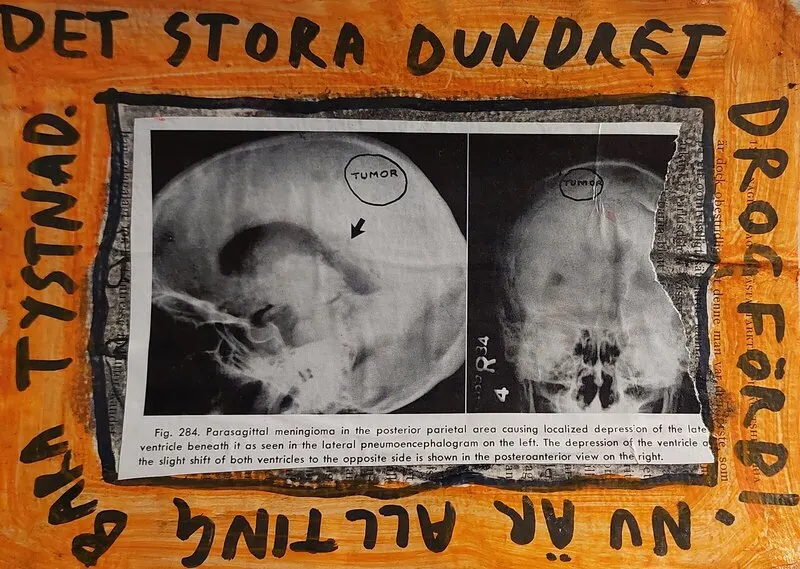 DET STORA DUNDRET
DROG FÖRBI.
NU ÄR ALLTING
BARA TYSTNAD.
TUMOR
TUMOR
R34
4
Fig. 284. Parasagittal meningioma in the posterior parietal area causing localized depression of the late
ventricle beneath it as seen in the lateral pneumoencephalogram on the left. The depression of the ventricle a
the slight shift of both ventricles to the opposite side is shown in the posteroanterior view on the right.